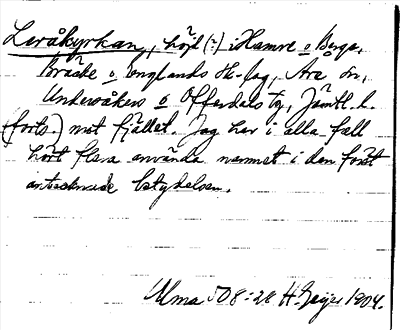 Leråkyrkan, höjd (?) i Hamre o Berge,
Bräcke o Englands H-fag, Åre sn,
Undersåkers o Offerdals tg, Jämtl. l.
(forts.) mot fjället. Jag har i alla fall
hört flera använda namnet i den först
antecknade betydelsen.
Ulma 508:28 H. Geijer 1904.